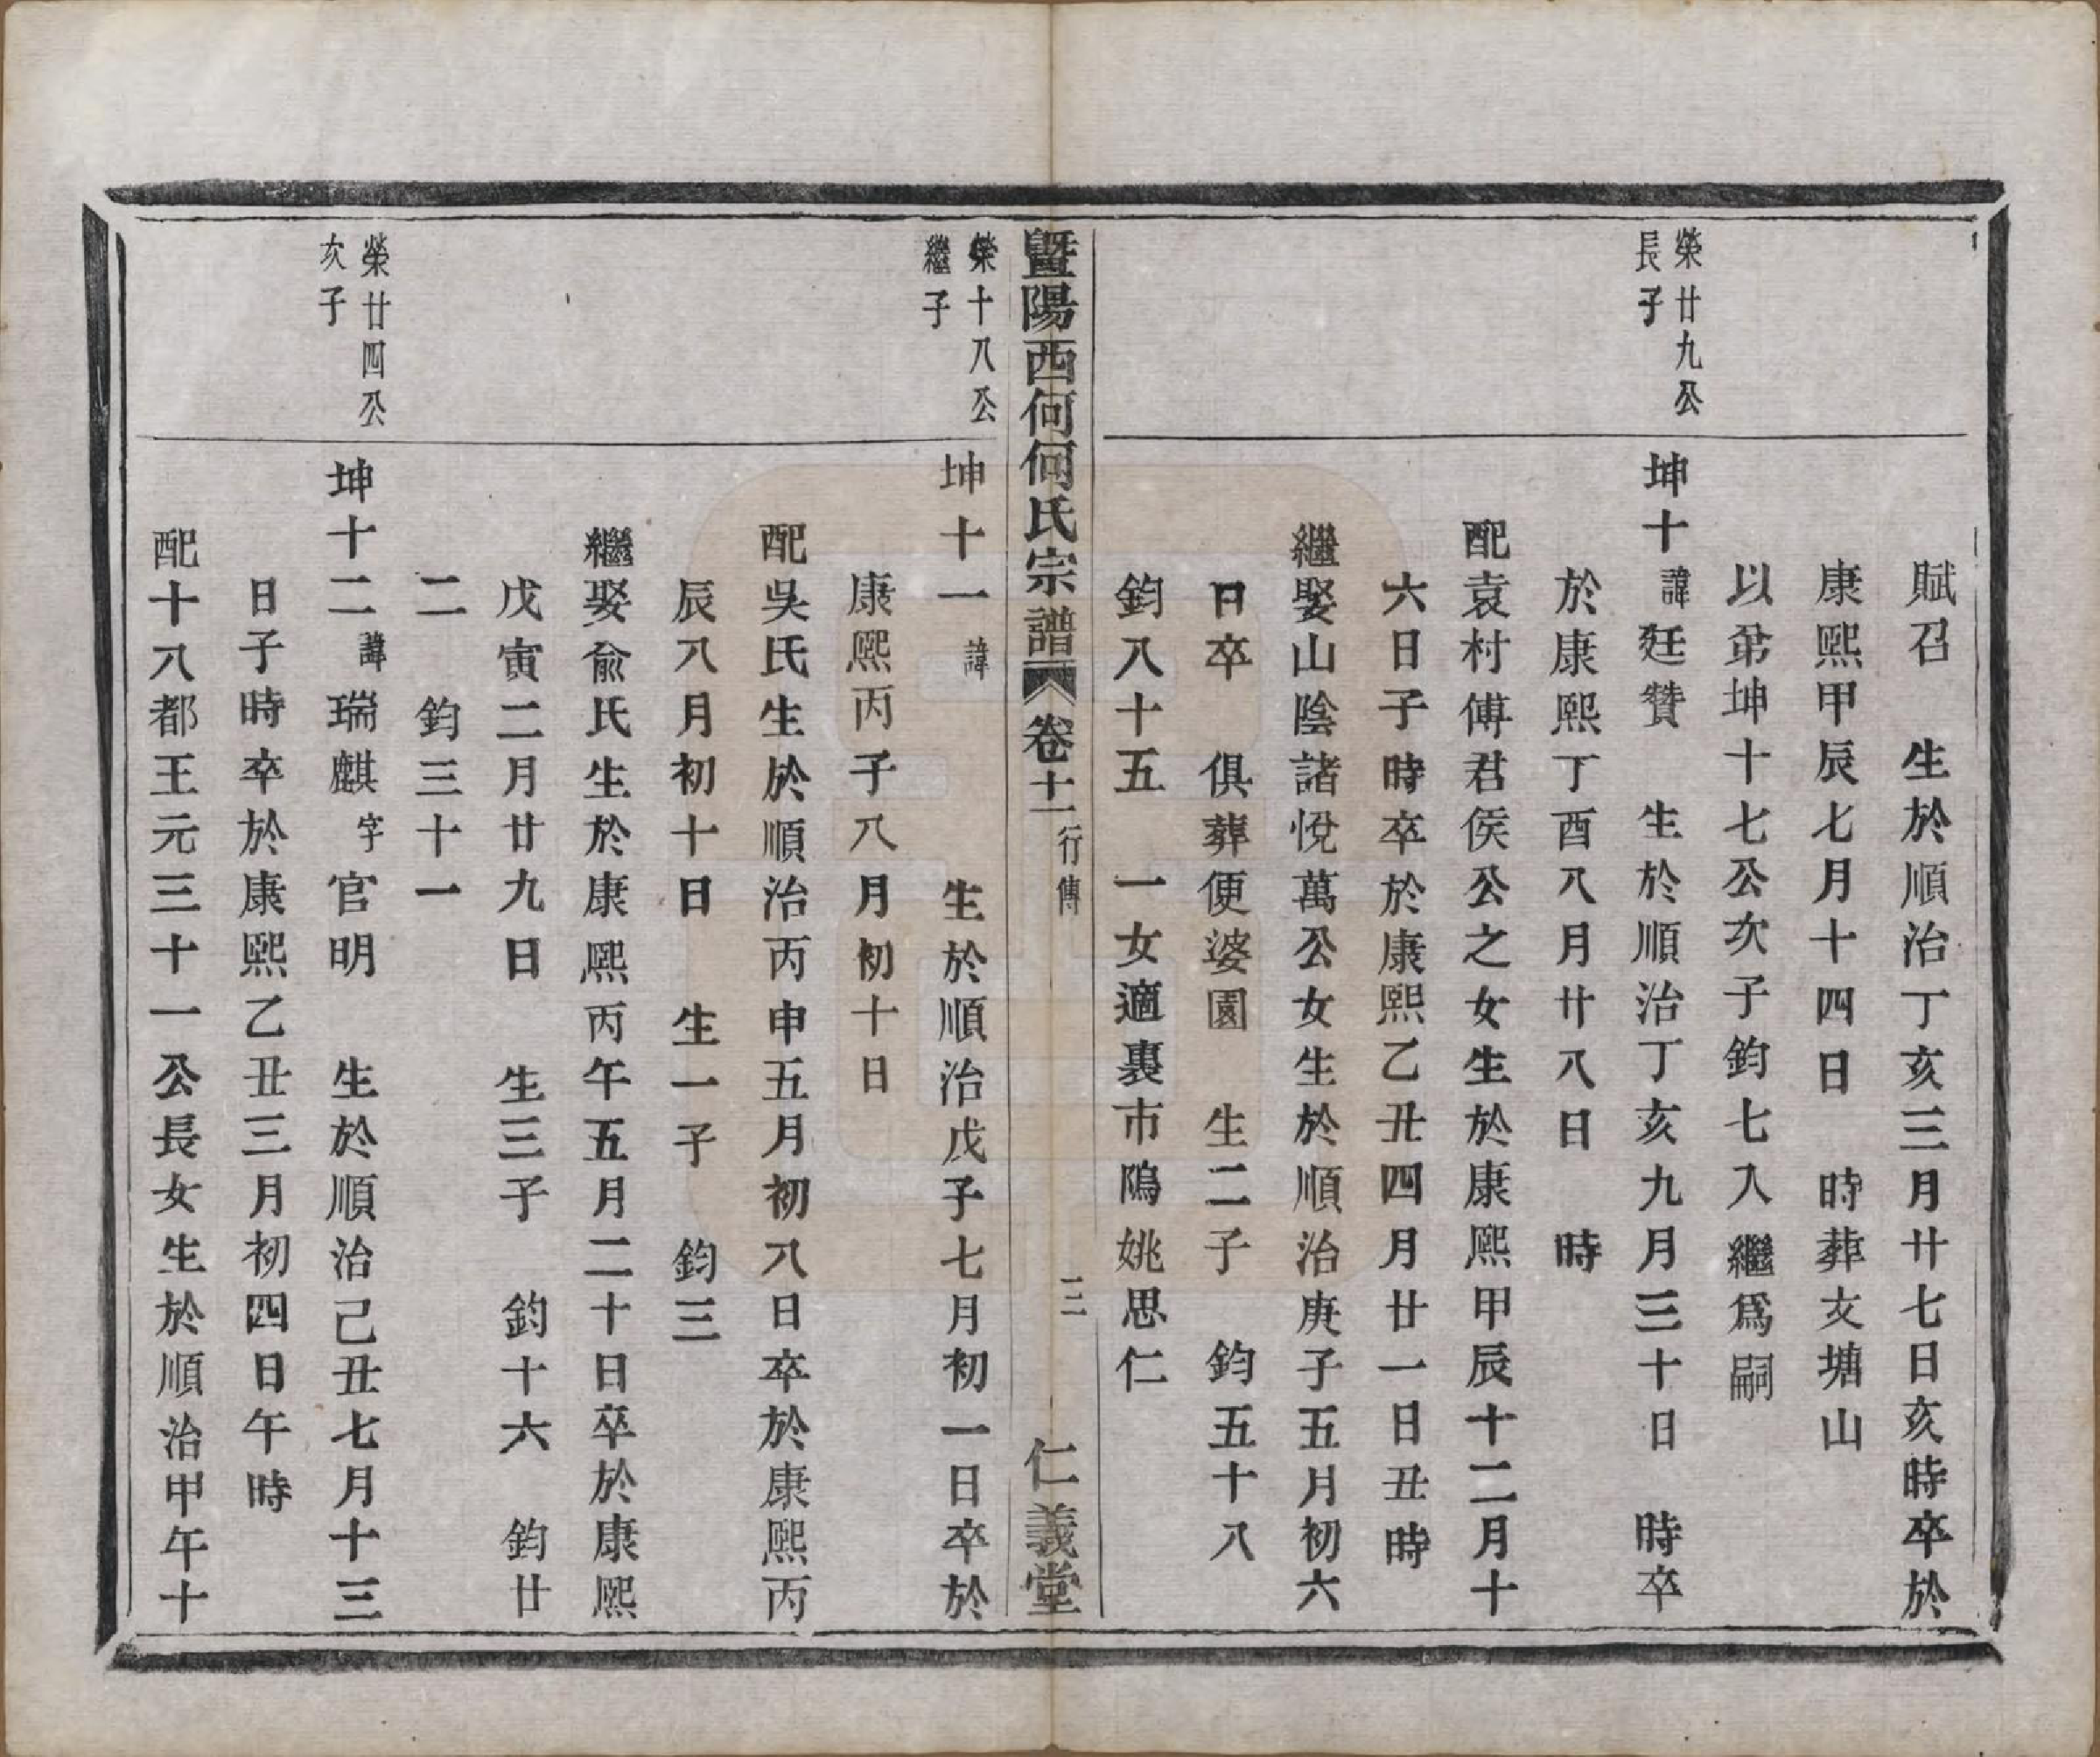 賦召　生於順治丁亥三月廿七日亥時卒於
康熙甲辰七月十四日　時葬文塘山
以弟坤十七公次子鈞七入繼爲嗣
榮廿九公
長子
坤十諱廷贊　生於順治丁亥九月三十日　時卒
於康熙丁酉八月廿八日　時
配袁村傅君侯公之女生於康熙甲辰十二月十
六日子時卒於康熙乙丑四月廿一日丑時
繼娶山陰諸悅萬公女生於順治庚子五月初六
日卒　俱葬便婆園　生二子　鈞五十八
鈞八十五　一女適裏市隖姚思仁
暨陽西何何氏宗譜　卷十一　行傳　三　仁義堂
榮十八公
繼子
坤十一諱　生於順治戊子七月初一日卒於
康熙丙子八月初十日
配吳氏生於順治丙申五月初八日卒於康熙丙
辰八月初十日　生一子　鈞三
繼娶俞氏生於康熙丙午五月二十日卒於康熙
戊寅二月廿九日　生三子　鈞十六　鈞廿
二　鈞三十一
榮廿四公
次子
坤十二諱瑞麒字官明　生於順治己丑七月十三
日子時卒於康熙乙丑三月初四日午時
配十八都王元三十一公長女生於順治甲午十